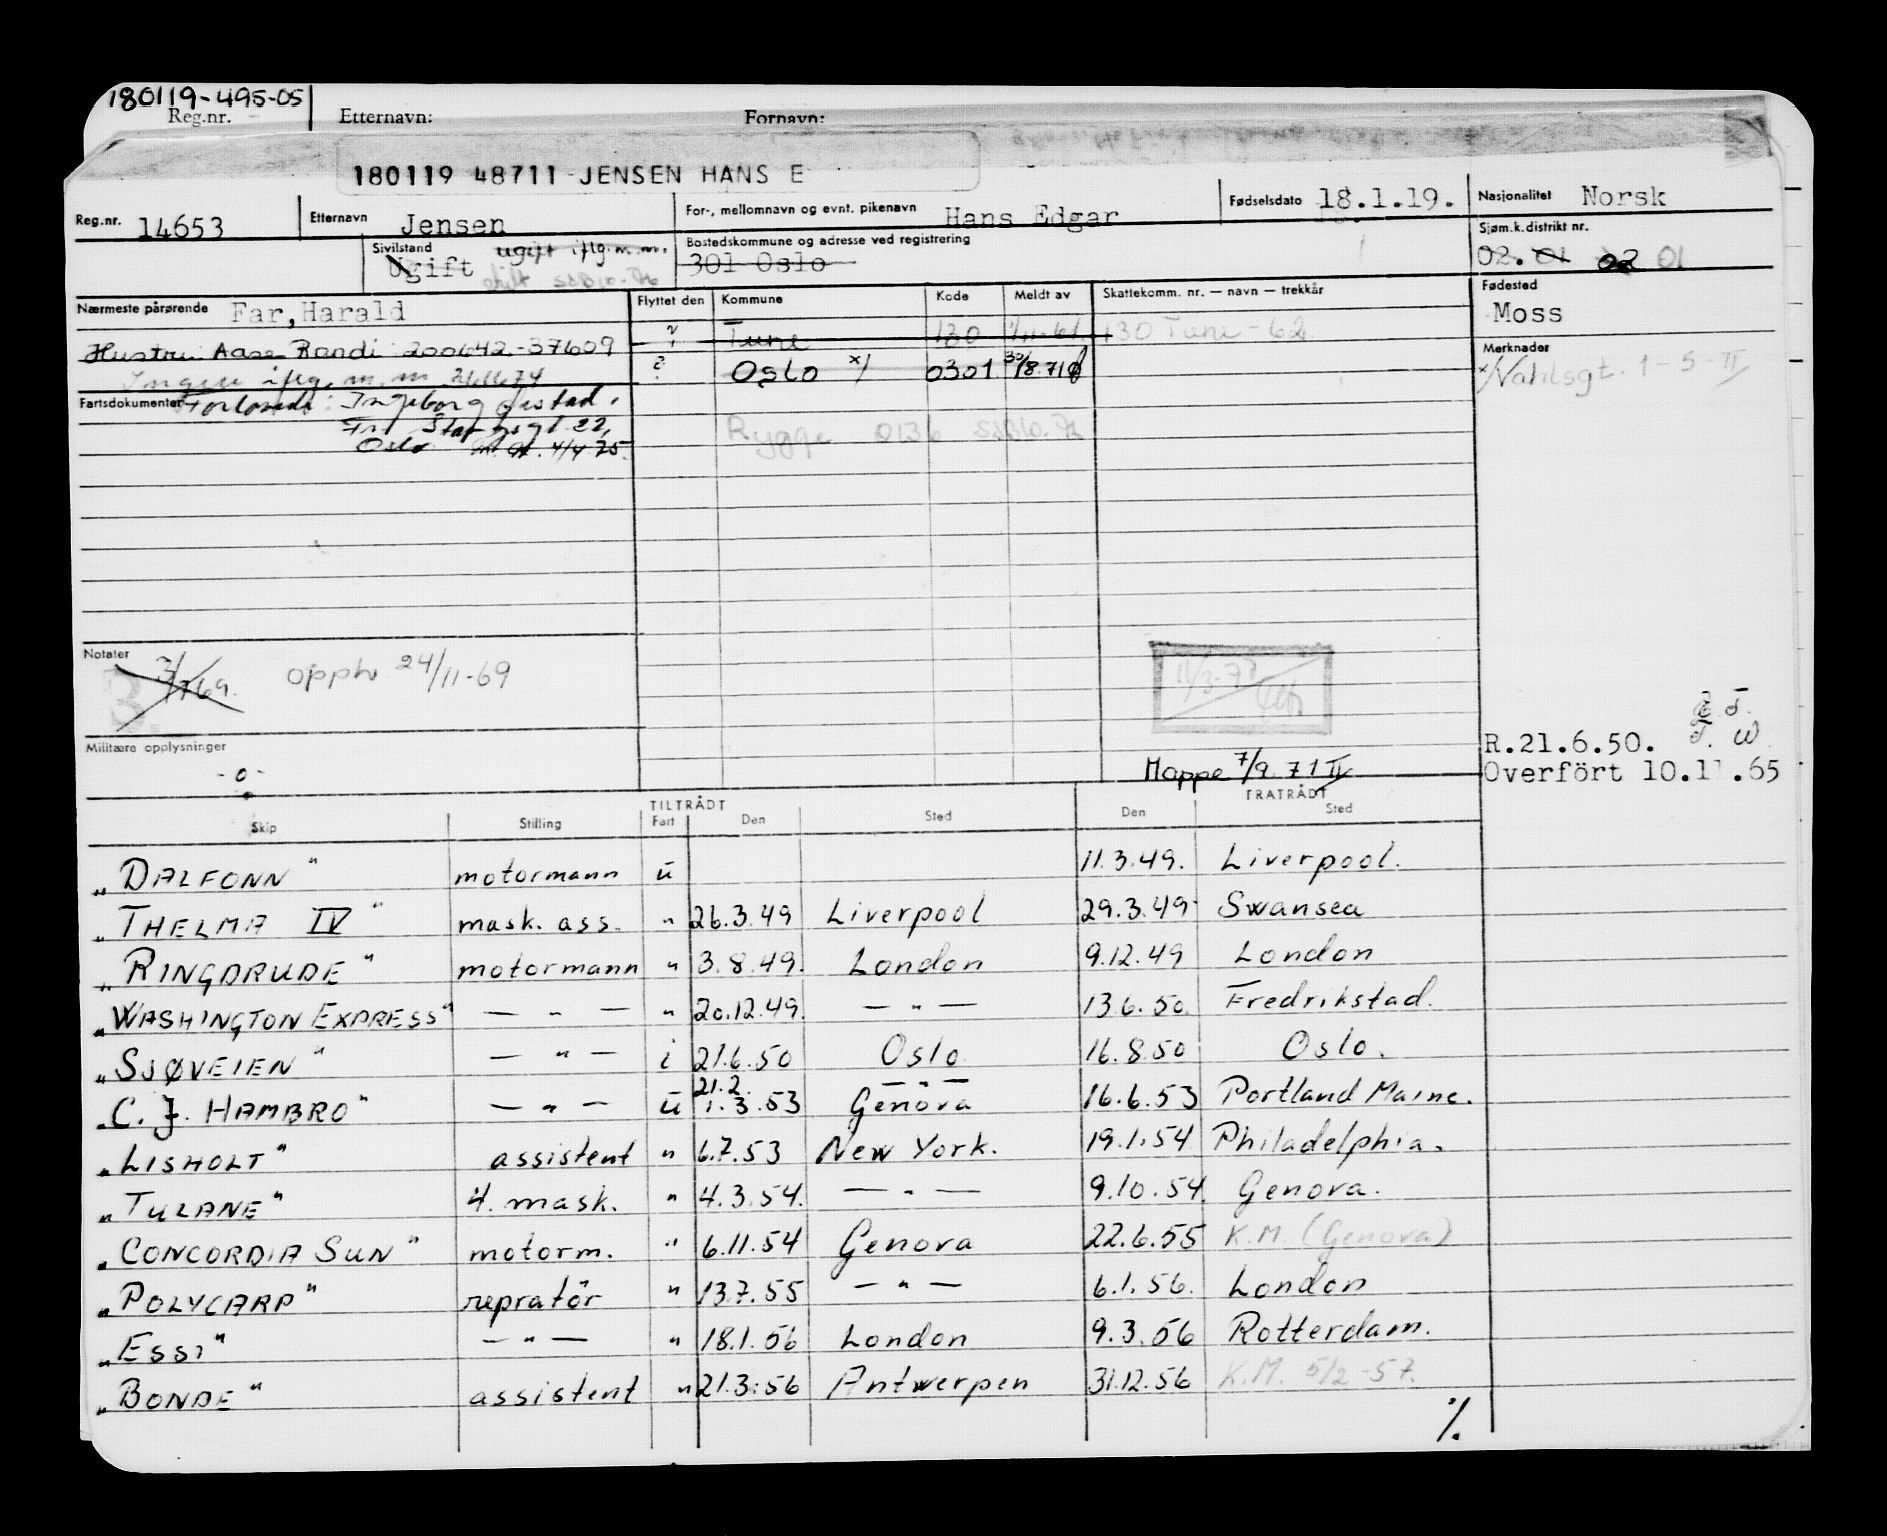 180119-495-05
Reg.nr. Etternavn: Fornavn:
180119 48711 JENSEN HANS E
Reg.nr. 14653 Etternavn Jensen For-, mellomnavn og evnt. pikenavn Hans Edgar Fødselsdato 18.1.19. Nasjonalitet Norsk
Sivilstand Ugift ugift iflg. m.m. Bostedskommune og adresse ved registrering 301 Oslo Sjøm.k.distrikt nr. 02. 01 02 01
Nærmeste pårørende Far, Harald Flyttet den Kommune Kode Meldt av Skattekomm. nr. — navn — trekkår Fødested Moss
Hustru Aase Randi 200642-37609 ? Tune 130 1/11-61 130 Tune - 62 Merknader
Ingen iflg. m.m 21.11.74 ? Oslo x/ 0301 30/8.71 x/ Vahlsgt. 1 - 5 - II
Fartsdokumenter Forlovede: Ingeborg
22,
Oslo 4/4 75.
Rygge 0136
Notater 3/7 69. opphv 24/11-69
11/3-77
Militære opplysninger
-o-
Mappe 7/9. 71 IV
R.21.6.50.
Overført 10.11.65
TILTRÅDT FRATRÅDT
Skip Stilling Fart Den Sted Den Sted
"DALFONN" motormann u 11.3.49. Liverpool.
"THELMA IV" mask. ass. " 26.3.49 Liverpool 29.3.49 Swansea
"RINGDRUDE" motormann " 3.8.49. London 9.12.49 London
"WASHINGTON EXPRESS" — " — " 20.12.49. — " — 13.6.50. Fredrikstad.
"SJØVEIEN" — " — i 21.6.50 Oslo 16.8.50 Oslo.
21.2. — " —
"C. J. HAMBRO" — " — u 1.3.53 Genova 16.6.53 Portland Maine.
"LISHOLT" assistent " 6.7.53 New York. 19.1.54 Philadelphia.
"TULANE" 4. mask. " 4.3.54. — " — 9.10.54. Genova.
"CONCORDIA SUN" motorm. " 6.11.54 Genova 22.6.55 K.M. (Genova)
"POLYCARP" repratør " 13.7.55 — " — 6.1.56. London
"ESSI" — " — " 18.1.56 London 9.3.56 Rotterdam.
"BONDE" assistent " 21.3.56 Antwerpen 31.12.56 K.M. 5/2-57.
%